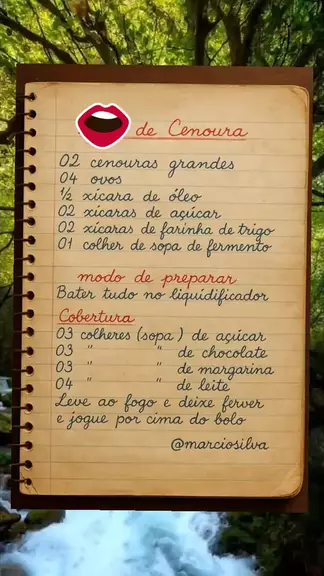 de Cenoura
02 cenouras grandes
04 ovos
½ xícara de óleo
02 xícaras de açúcar
02 xícaras de farinha de trigo
01 colher de sopa de fermento
modo de preparar
Bater tudo no liquidificador
Cobertura
03 colheres (sopa) de açúcar
03 " " de chocolate
03 " " de margarina
04 " " de leite
Leve ao fogo e deixe ferver
e jogue por cima do bolo
@marciosilva